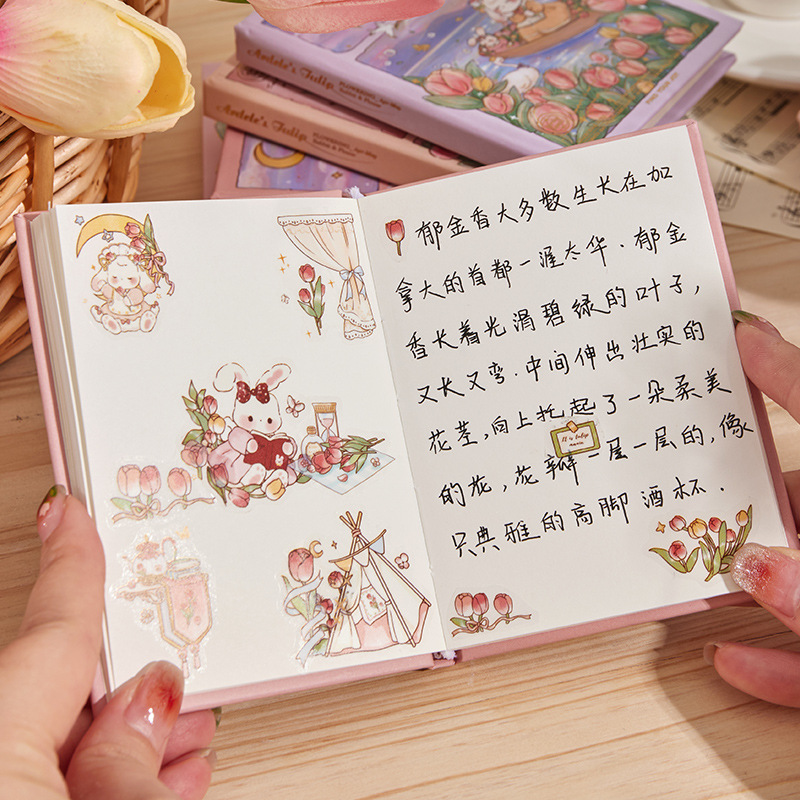 Ardele's Tulip
FLOWERING, Apr-May
Ardele's Tulip
FLOWERING, Apr-May
郁金香大多数生长在加
拿大的首都一渥太华.郁金
香长着光滑碧绿的叶子,
又长又弯.中间伸出壮实的
花茎,向上托起了一朵柔美
的花,花瓣一层一层的,像
只典雅的高脚酒杯.